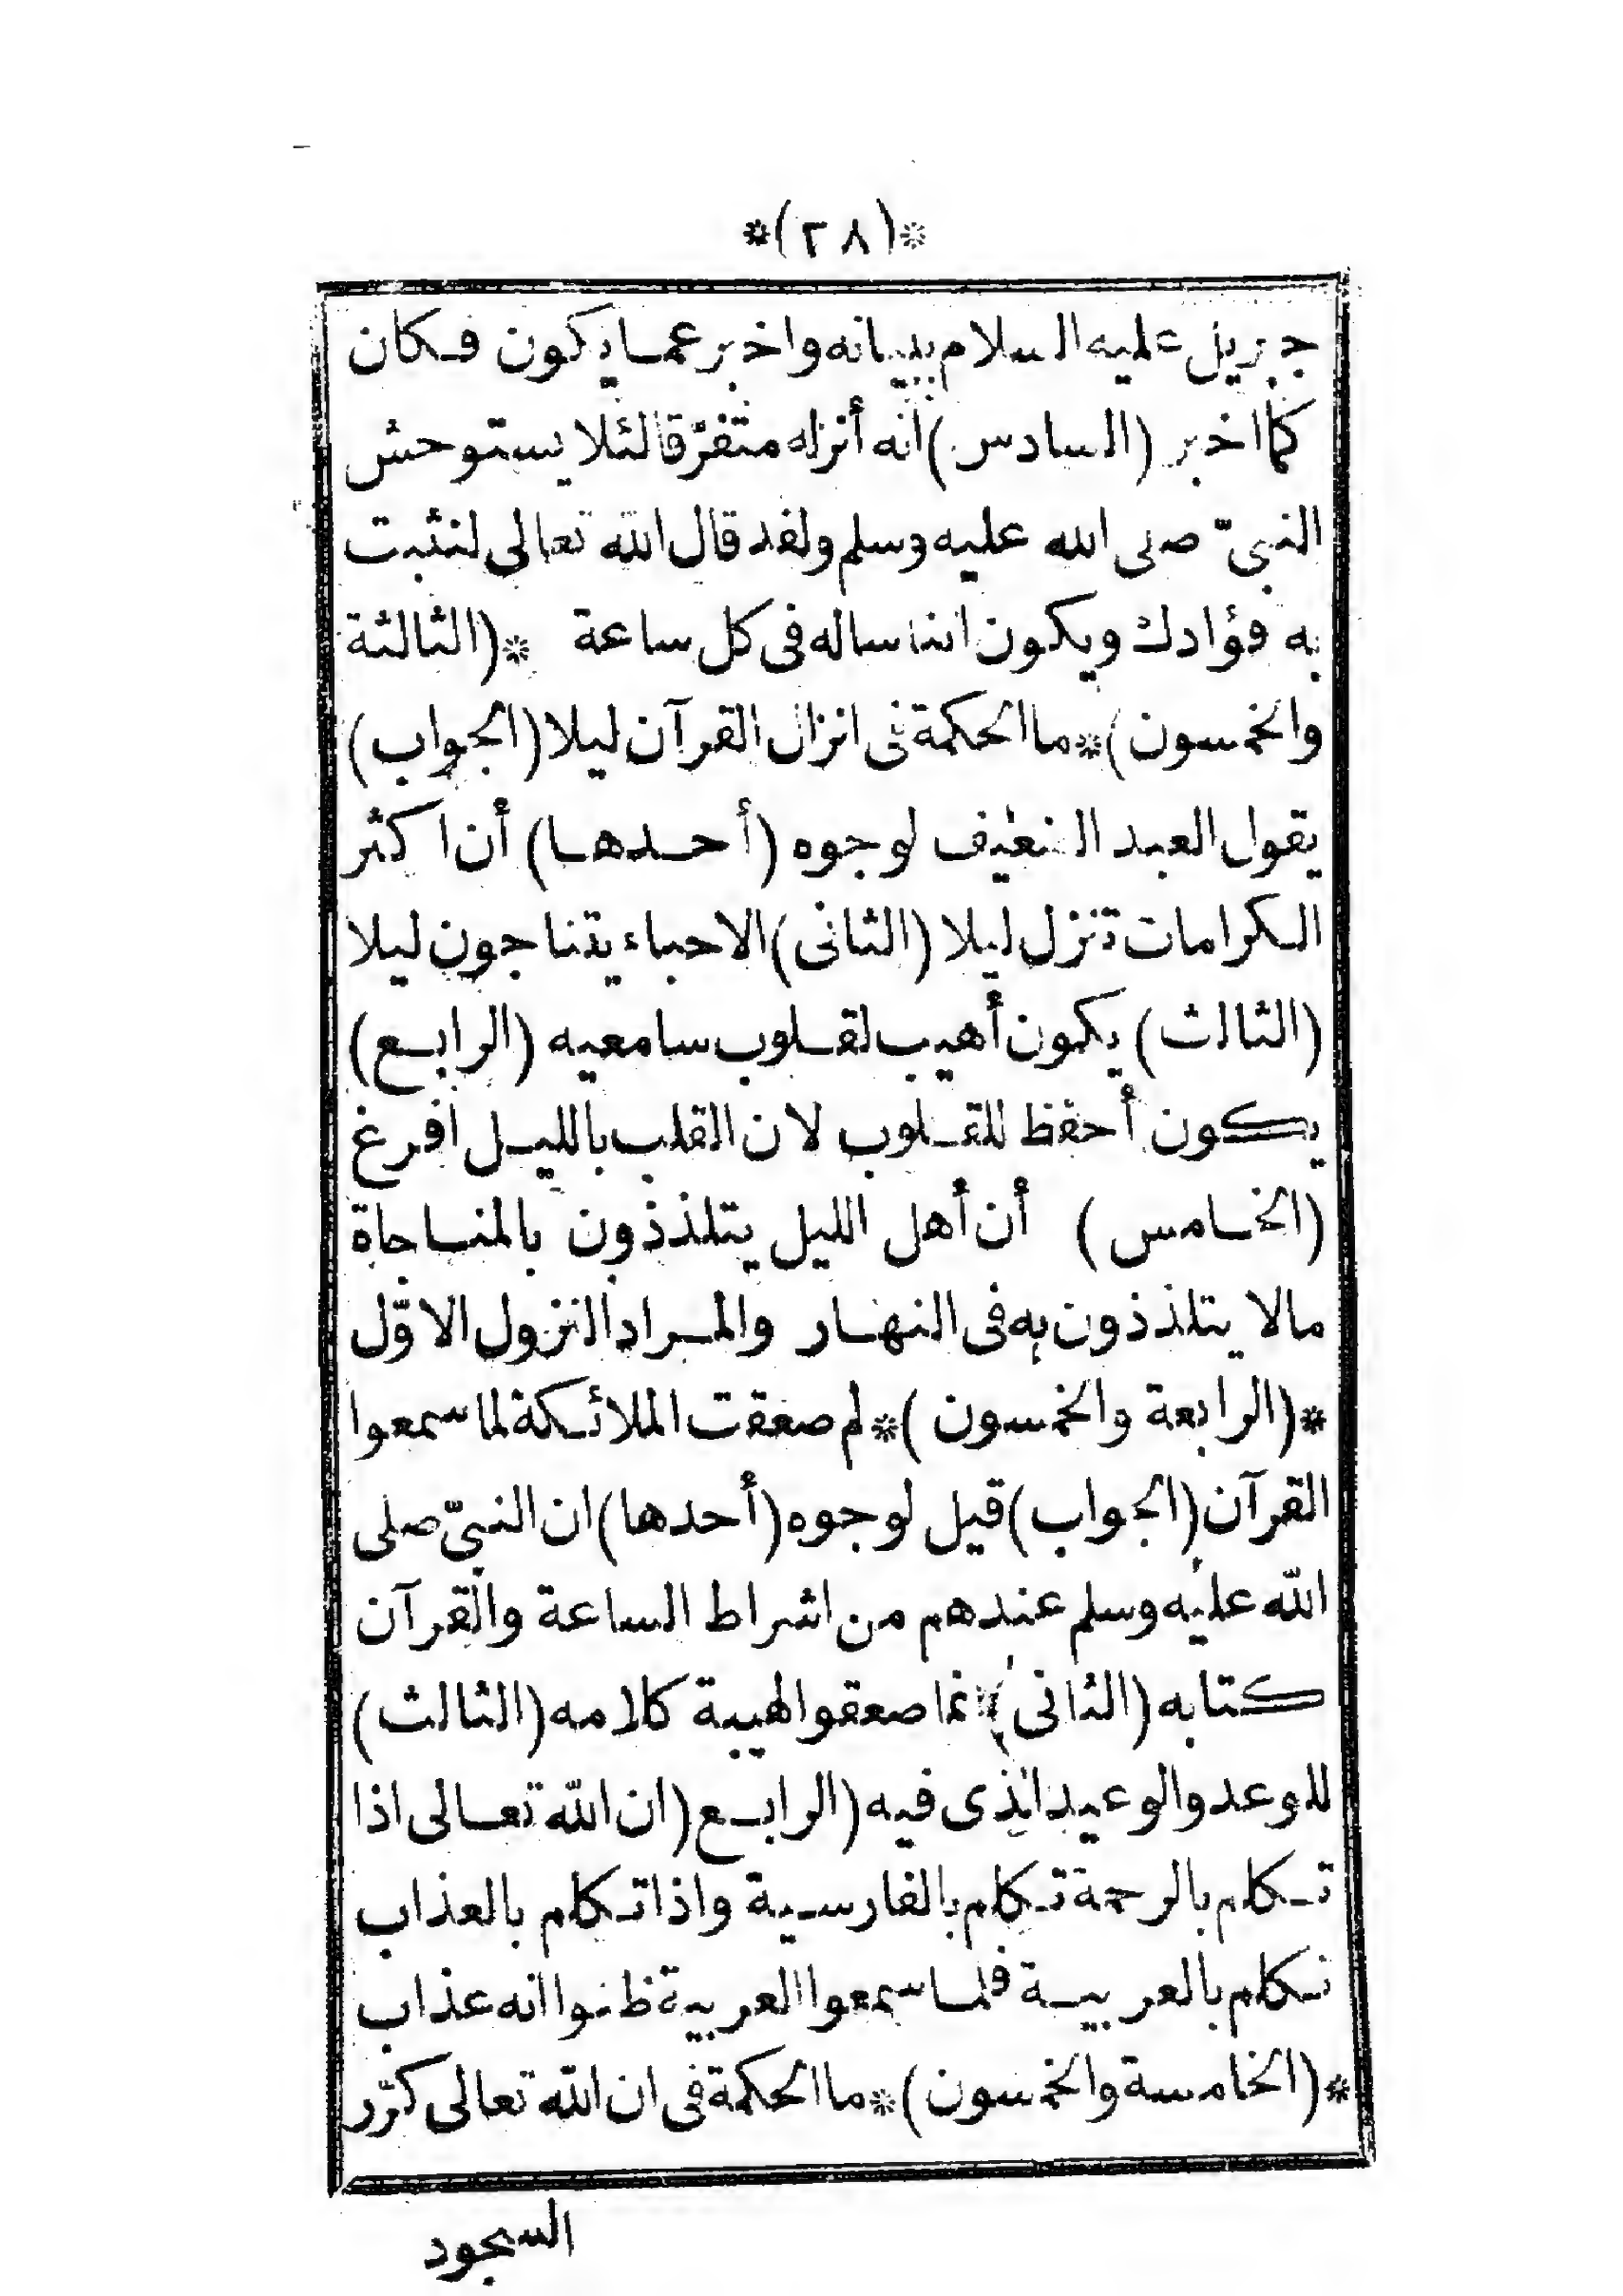 *(٢٨)*
جبريل عليه السلام ببيانه واخبر عما يكون فكان
كما اخبر (السادس) انه أنزله متفرّقا لئلا يستوحش
النبيّ صلى الله عليه وسلم ولقد قال الله تعالى لنثبت
به فؤادك ويكون ايناسا له فى كل ساعة *(الثالثة
والخمسون)* ما الحكمة فى انزال القرآن ليلا (الجواب)
يقول العبد الضعيف لوجوه (أحدها) أن اكثر
الكرامات تنزل ليلا (الثانى) الاحباء يتناجون ليلا
(الثالث) يكون أهيب لقلوب سامعيه (الرابع)
يكون أحفظ للقلوب لان القلب بالليل افرغ
(الخامس) أن أهل الليل يتلذذون بالمناجاة
مالا يتلذذون به فى النهار والمراد النزول الاوّل
*(الرابعة والخمسون)* لم صعقت الملائكة لما سمعوا
القرآن (الجواب) قيل لوجوه (أحدها) ان النبيّ صلى
الله عليه وسلم عندهم من اشراط الساعة والقرآن
كتابه (الثانى) انما صعقوا لهيبة كلامه (الثالث)
للوعد والوعيد الذى فيه (الرابع( ان الله تعالى اذا
تكلم بالرحمة تكلم بالفارسية واذا تكلم بالعذاب
تكلم بالعربية فلما سمعوا العربية ظنوا انه عذاب
*(الخامسة والخمسون)* ما الحكمة فى ان الله تعالى كرّر
السجود